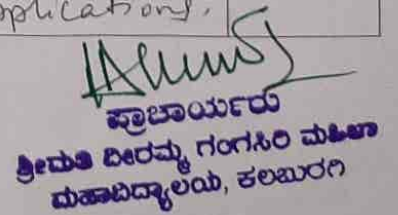 applications.
ಪ್ರಾಚಾರ್ಯರು
ಶ್ರೀಮತಿ ವೀರಮ್ಮ ಗಂಗಸಿರಿ ಮಹಿಳಾ
ಮಹಾವಿದ್ಯಾಲಯ, ಕಲಬುರಗಿ